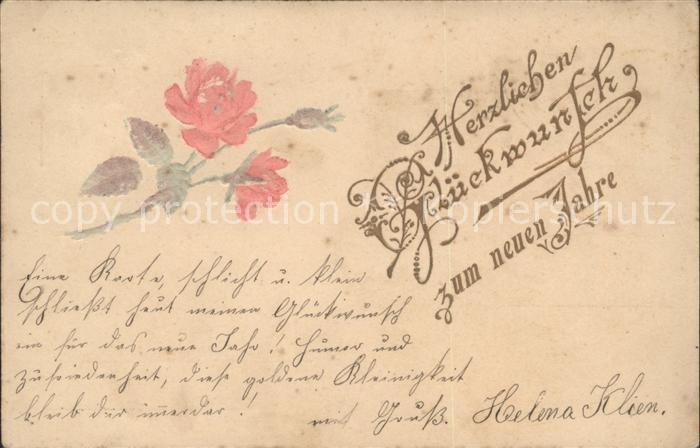 Herzlichen
Glückwunsch
zum neuen Jahre
copy protection Kopierschutz
Eine Karte, schlicht u. klein
schließt heut meinen Glückwunsch
ein für das neue Jahr! Humor und
Zufriedenheit, diese goldene Kleinigkeit
bleib dir immerdar!
mit Gruß. Helena Klien.